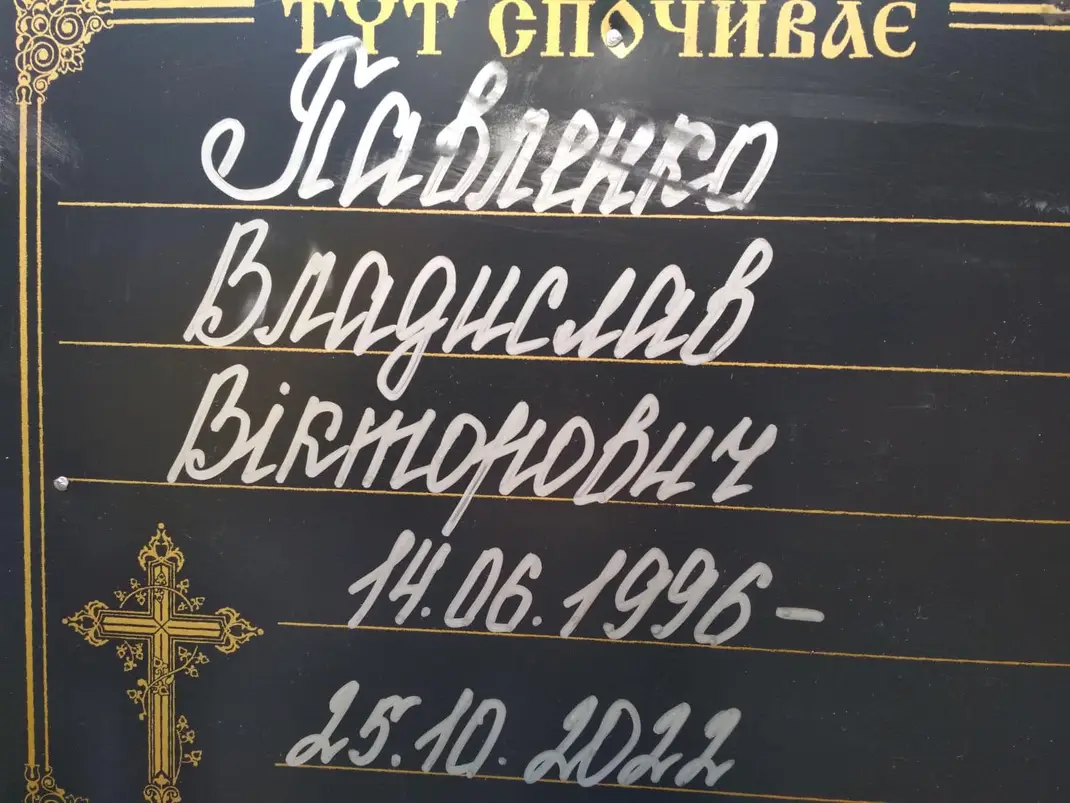 ТУТ СПОЧИВАЄ
Павленко
Владислав
Вікторович
14.06.1996-
25.10.2022